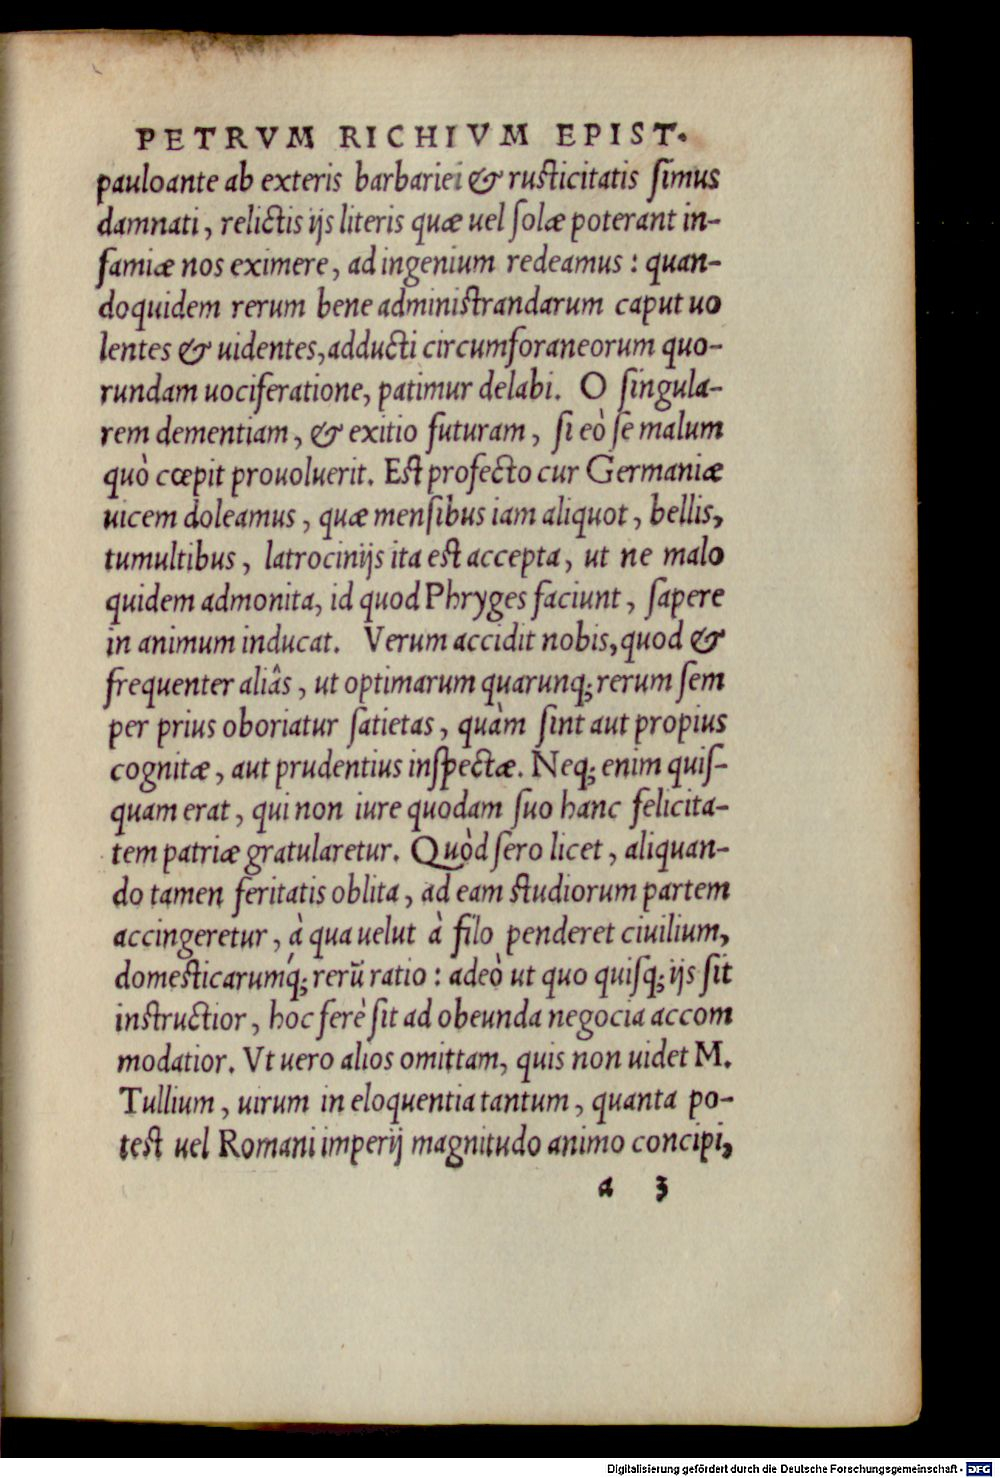 PETRVM RICHIVM EPIST.
pauloante ab exteris barbariei & rusticitatis ſimus
damnati, relictis ijs literis quæ uel ſolæ poterant in-
famiæ nos eximere, ad ingenium redeamus: quan-
doquidem rerum bene administrandarum caput uo
lentes & uidentes, adducti circumforaneorum quo-
rundam uociferatione, patimur delabi. O ſingula-
rem dementiam, & exitio futuram, ſi eò ſe malum
quò cœpit prouoluerit. Est profecto cur Germaniæ
uicem doleamus, quæ menſibus iam aliquot, bellis,
tumultibus, latrocinijs ita est accepta, ut ne malo
quidem admonita, id quod Phryges faciunt, ſapere
in animum inducat. Verum accidit nobis, quod &
frequenter aliâs, ut optimarum quarunq; rerum ſem
per prius oboriatur ſatietas, quàm ſint aut propius
cognitæ, aut prudentius inſpectæ. Neq; enim quiſ-
quam erat, qui non iure quodam ſuo hanc felicita-
tem patriæ gratularetur. Quòd ſero licet, aliquan-
do tamen feritatis oblita, ad eam studiorum partem
accingeretur, à qua uelut à filo penderet ciuilium,
domesticarumq́; rerū ratio: adeò ut quo quiſq; ijs ſit
instructior, hoc ferè ſit ad obeunda negocia accom
modatior. Vt uero alios omittam, quis non uidet M.
Tullium, uirum in eloquentia tantum, quanta po-
test uel Romani imperij magnitudo animo concipi,
a 3
Digitalisierung gefördert durch die Deutsche Forschungsgemeinschaft - DFG